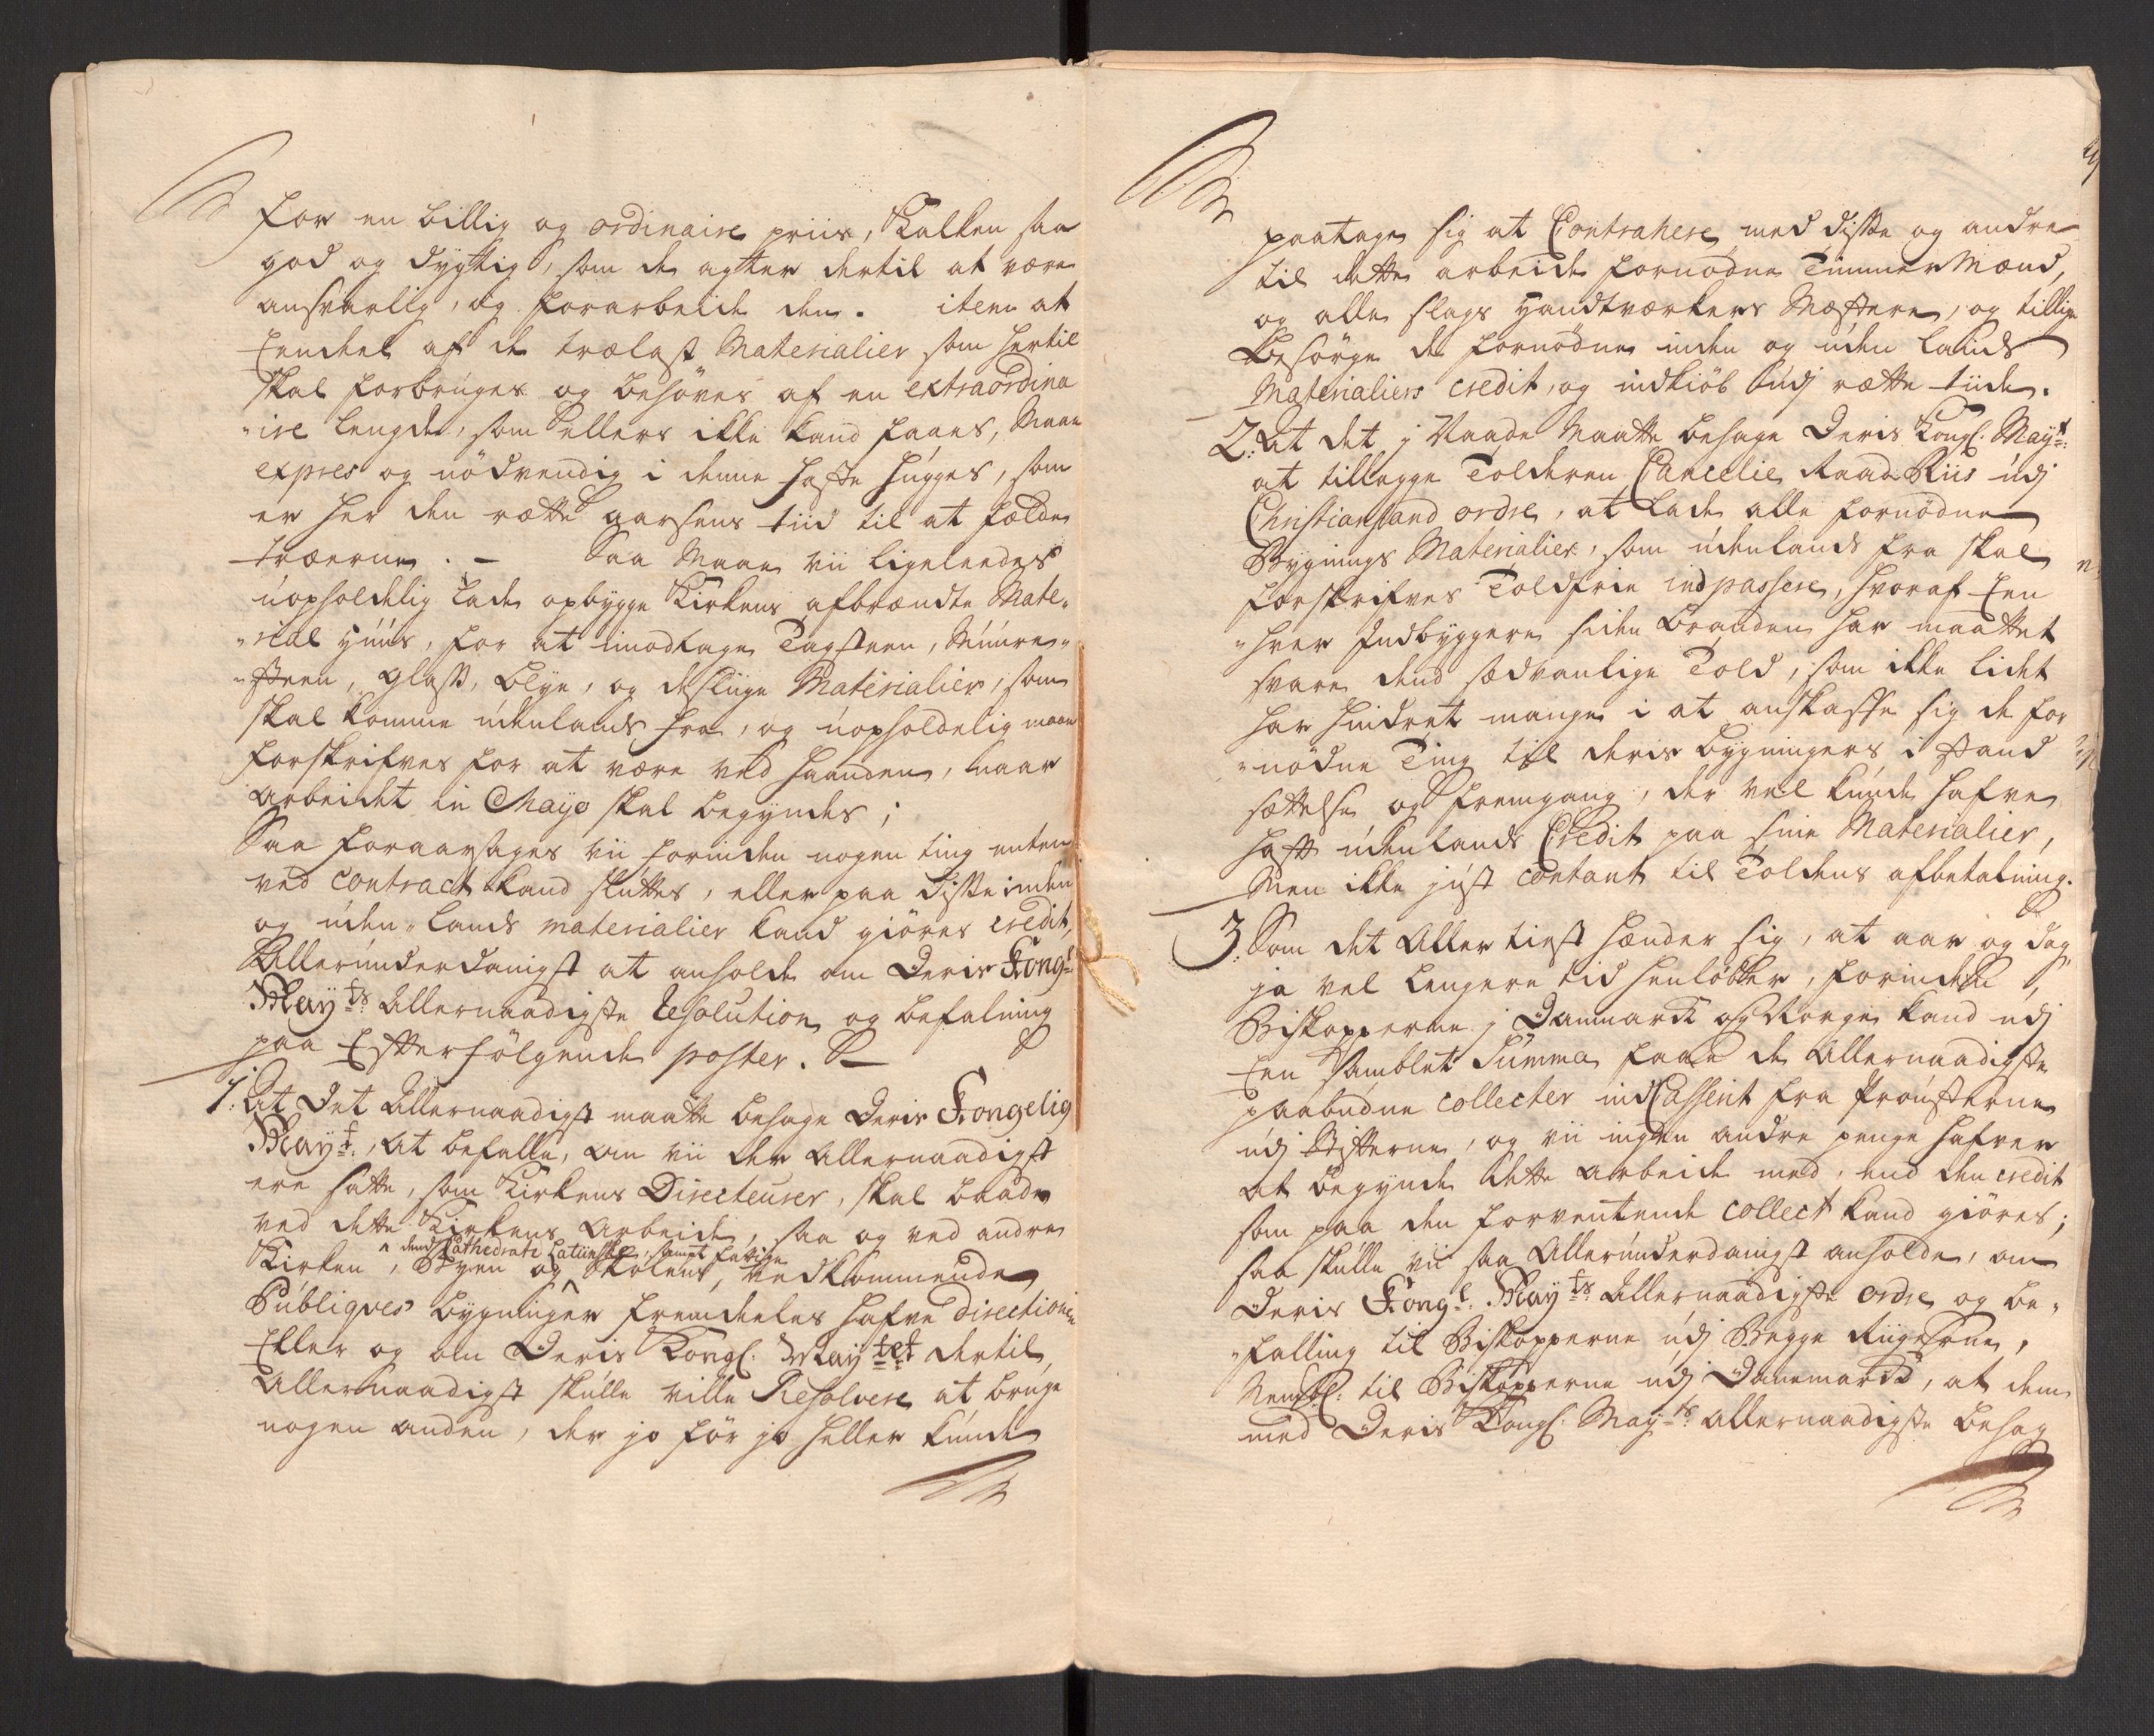 for en billig og ordinaire priis, Kalken saa
god og dygtig, som de agter dertil at være
ansvarlig, og forarbeide den. item at
Eendeel af de trælast Materialier som hertil
skal forbruges og behøves af en extraordina
"ire lengde, som ellers ikke kand faaes, Maae
expres og nødvendig i denne høste hugges, som
er her den rætte aarsens tiid til at fælde
træerne. - Saa Maae vii ligeleedes
uopholdelig lade opbygge Kirkens afbrændte Mate„
„rial Huus, for at imodtage Tagsteen, Muure„
„steen, glass, blye, og desliige Materialier, som
skal komme udenlands fra, og uopholdelig maae
forskrifves for at være ved haanden, naar
arbeidet in Mayo skal begyndes;
Saa foraarsages vii forinden nogen ting enten
ved contract kand sluttes, eller paa disse inden
og uden„lands materialier kand giøres credit,
Allerunderdanigst at anholde om Deris Kongl.
May.ts Allernaadigste Resolution og befalning
paa Efterfølgende poster.
1. At Det Allernaadigst maatte behage Deris Kongelig
May.t, At befalle, om vii der Allernaadigst
ere satte, som Kirkens Directeurer, skal baade
ved dette Kirkens Arbeide, saa og ved andre
dend Cathedrale Latinske, sampt fattige
Kirken, Byen og Skolens, vedkommende
Publiqves bygninger fremdeeles hafve direction,
Eller og om Deris Kongl. May.tet dertil
Allernaadigst skulle ville Resolvere at bruge
nogen anden, der jo før jo heller kunde
paatage sig at Contrahere med disse og andre
til dette arbeide fornødne TimmerMænd,
og alle slags Handtværkers Mestere, og tillige
Besørge de fornødne inden og uden lands
Materialiers credit, og indkiøb udj rætte tiide.
2. At det j Naade Maatte behage Deris Kongl. May.t
at tillegge Tolderen Cancelie Raad Riis udj
Christiansand ordre, at lade alle fornødne
Bygnings Materialier, som udenlands fra skal
forskrifves Toldfrie indpassere, hvoraf Een
„hver Indbyggere siden Branden har maattet
svare dend sædvanlige Told, som ikke lidet
har hindret mange i at anskaffe sig de for
„nødne Ting til deris bygningers i stand
sættelse og fremgang, der vel kunde hafve
haft udenlands Credit paa sine Materialier,
Men ikke just contant til Toldens afbetalning.
3. Som det Aller tiest hænder sig, at aar og dag
ja vel lengere tid henløbber, forinden
Biskopperne j Danmark og Norge kand udj
Een samblet Summa faae de Allernaadigste
paabudne collecter indCasserit fra Prousterne
udj Stifterne, og vii ingen andre penge hafver
at begynde dette arbeide med, end den credit
som paa den forventende collect kand giøres;
saa skulle vii saa Allerunderdanigst anholde, om
Deris Kongl. May.ts Allernaadigste ordre og be„
„falling til Biskopperne udj Begge Riigerne,
Nembl. til Biskopperne udj Dannemark, at dem
med Deris Kongl. May.ts allernaadigste behag